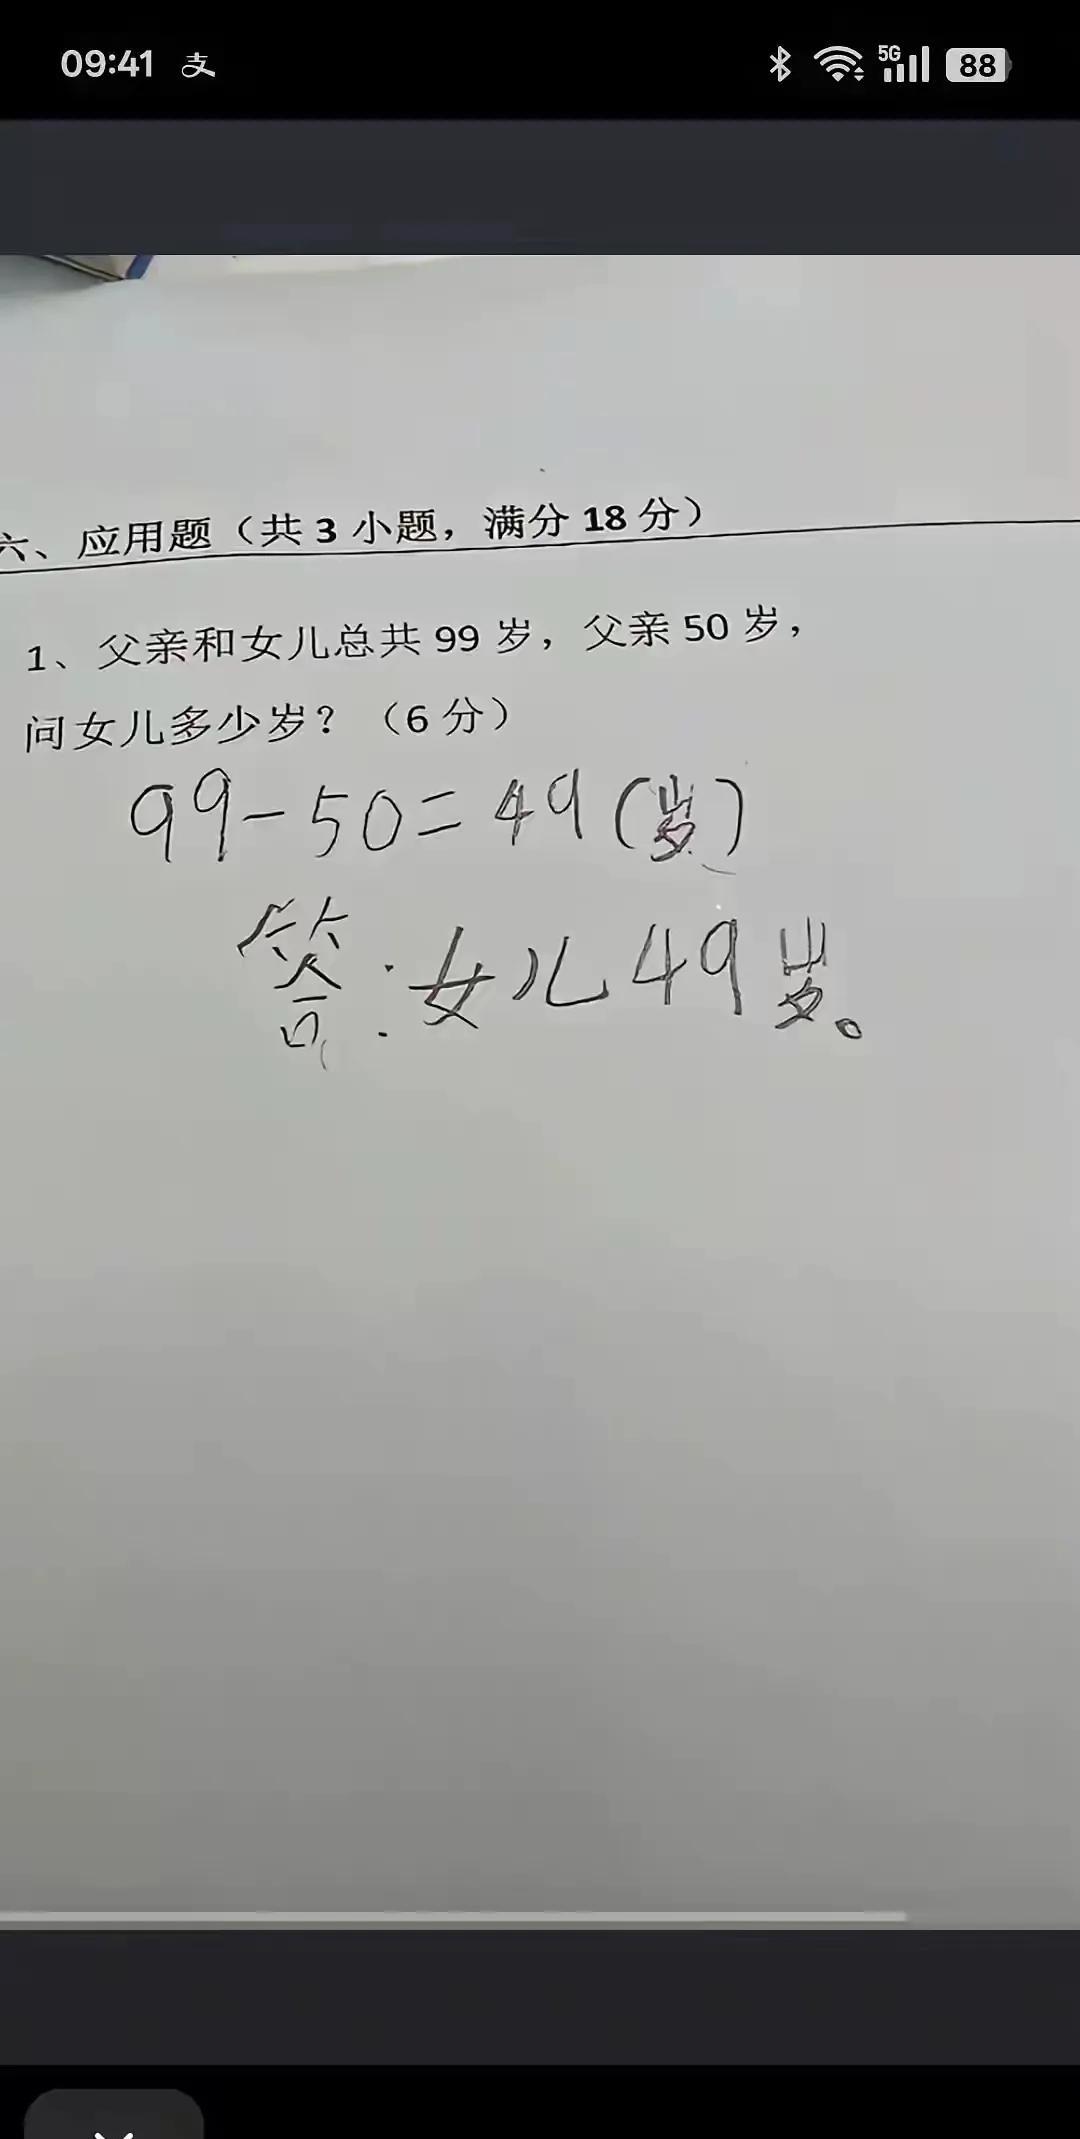 09:41 支 5G 88
六、应用题（共 3 小题，满分 18 分）
1、父亲和女儿总共 99 岁，父亲 50 岁，
问女儿多少岁？（6 分）
99-50=49(岁)
答:女儿49岁。